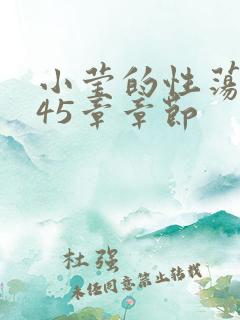 小莹的性荡
45章章节
杜强
未经同意禁止转载